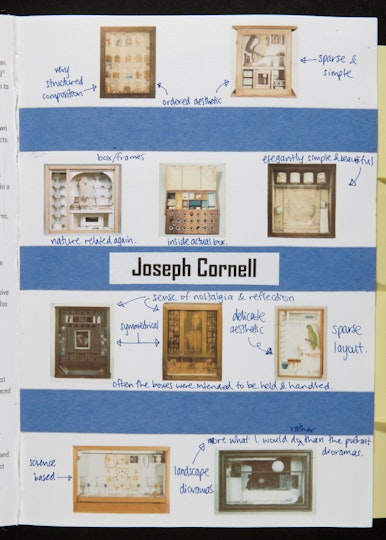 very
structured
composition
ordered aesthetic
sparse &
simple
box/frames
elegantly simple & beautiful
nature related again.
inside actual box.
Joseph Cornell
sense of nostalgia & reflection
symmetrical
delicate
aesthetic
sparse
layout.
Often the boxes were intended to be held & handled.
rather
more what I would do than the portrait
dioramas.
science
based
landscape
dioramas